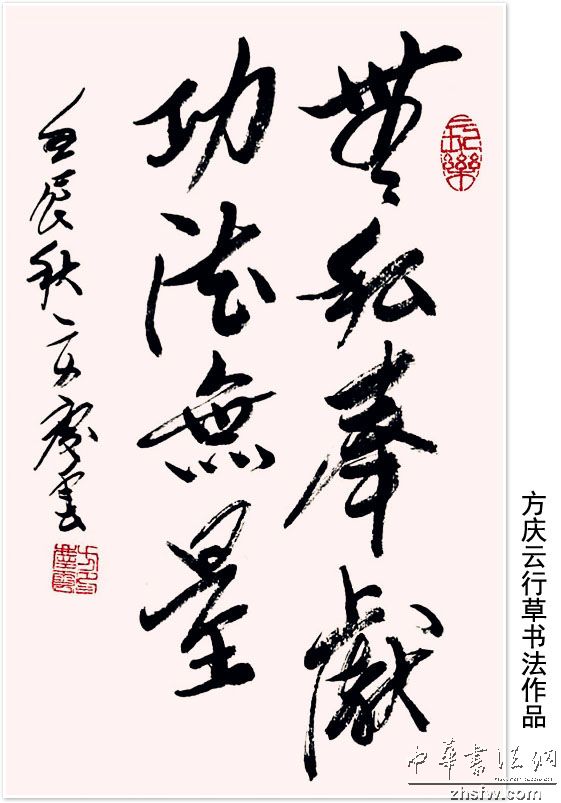 長樂
無私奉獻
功德無量
壬辰秋方慶雲
方庆云行草书法作品
中華書法網
zhsfw.com